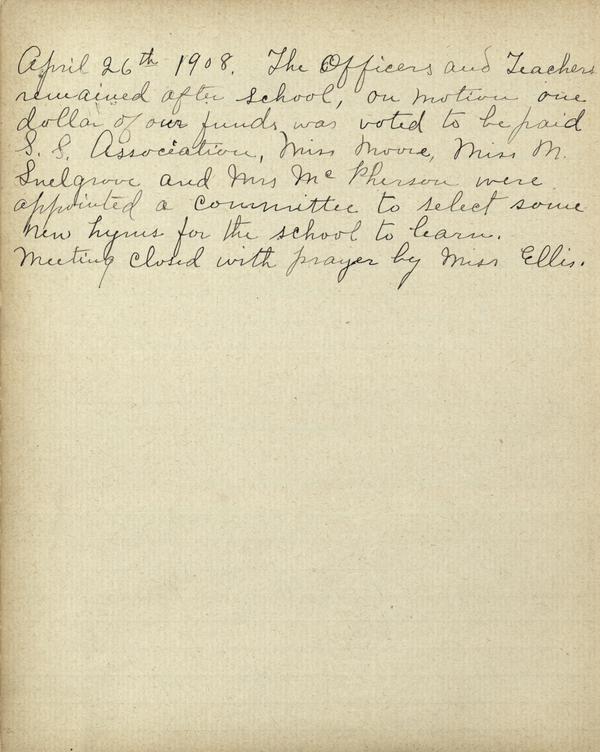 April 26th 1908. The Officers and Teachers
remained after school, on motion one
dollar of our funds was voted to be paid
S. S. Association, Miss Moore, Miss M.
Snelgrove and Mrs McPherson were
appointed a committee to select some
new hyms for the school to learn.
Meeting closed with prayer by Miss Ellis.